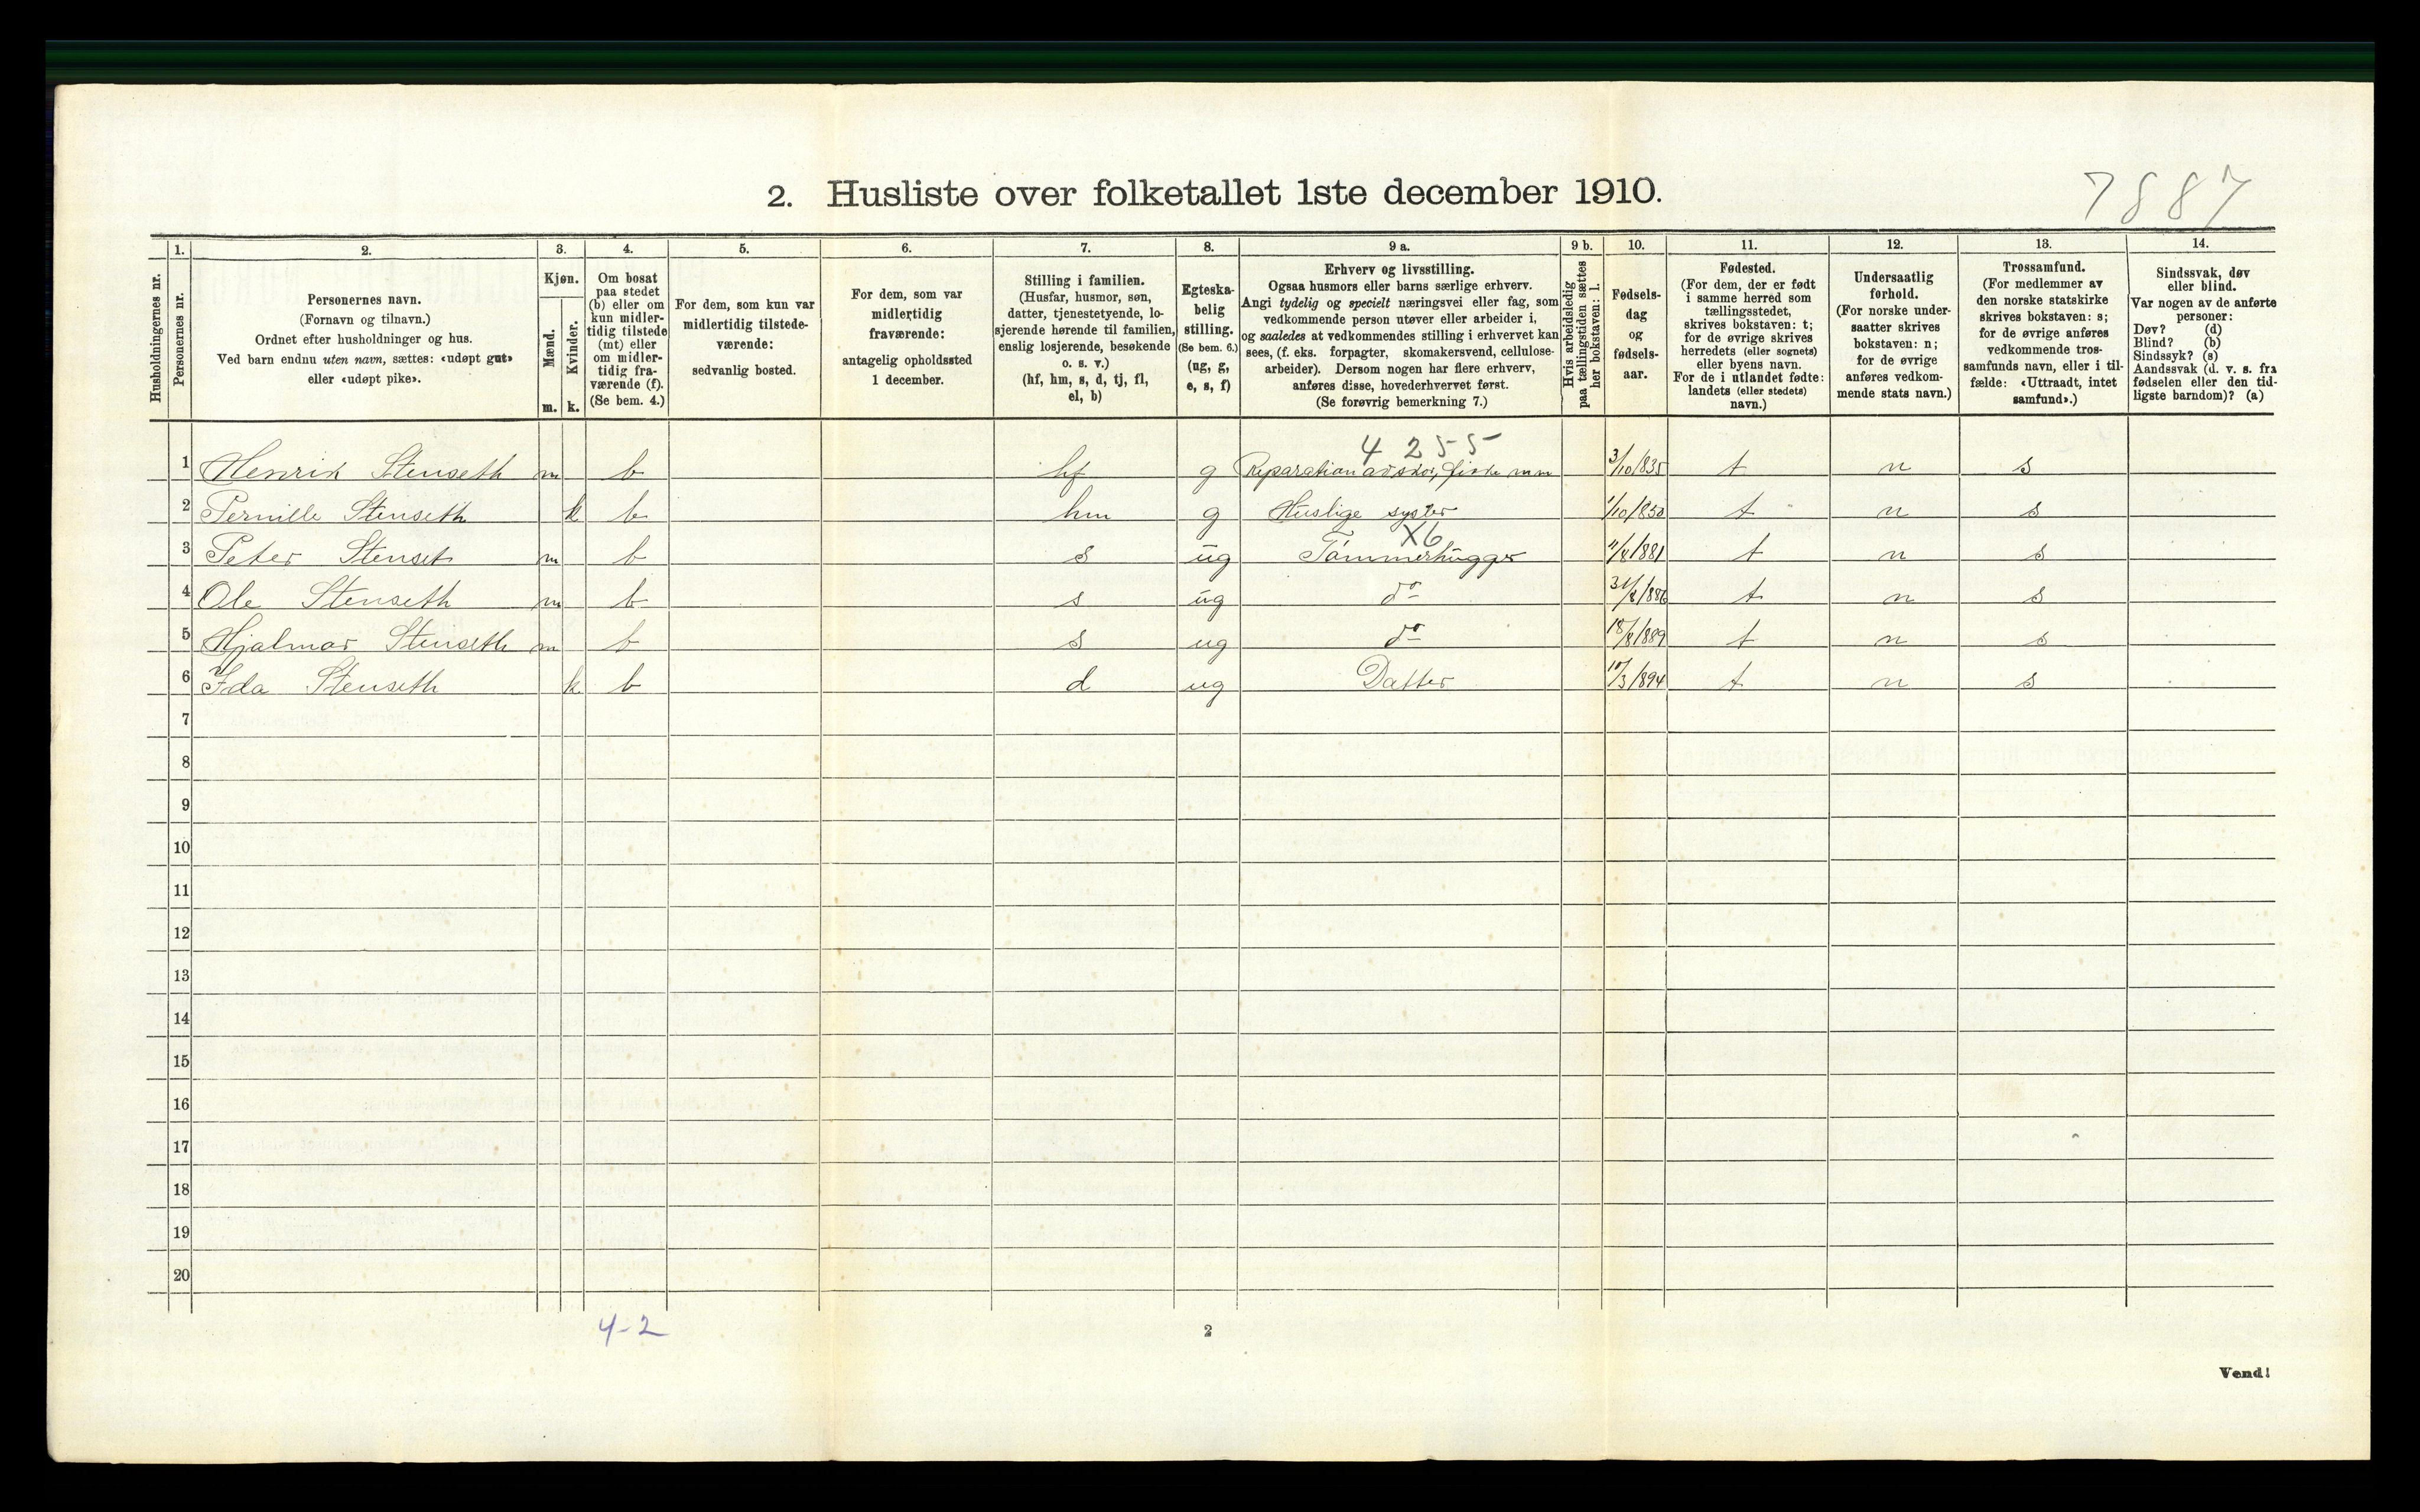 7887
2. Husliste over folketallet 1ste december 1910.
Husholdningernes nr.
1.
Personernes nr.
2.
Personernes navn.
(Fornavn og tilnavn.)
Ordnet efter husholdninger og hus.
Ved barn endnu uten navn, sættes: «udøpt gut»
eller «udøpt pike».
3.
Kjøn.
Mænd.
Kvinder.
m. k.
4.
Om bosat
paa stedet
(b) eller om
kun midler-
tidig tilstede
(mt) eller
om midler-
tidig fra-
værende (f).
(Se bem. 4.)
5.
For dem, som kun var
midlertidig tilstede-
værende:
sedvanlig bosted.
6.
For dem, som var
midlertidig
fraværende:
antagelig opholdssted
1 december.
7.
Stilling i familien.
(Husfar, husmor, søn,
datter, tjenestetyende, lo-
sjerende hørende til familien,
enslig losjerende, besøkende
o. s. v.)
(hf, hm, s, d, tj, fl,
el, b)
8.
Egteska-
belig
stilling.
(Se bem. 6.)
(ug, g,
e, s, f)
9 a.
Erhverv og livsstilling.
Ogsaa husmors eller barns særlige erhverv.
Angi tydelig og specielt næringsvei eller fag, som
vedkommende person utøver eller arbeider i,
og saaledes at vedkommendes stilling i erhvervet kan
sees, (f. eks. forpagter, skomakersvend, cellulose-
arbeider). Dersom nogen har flere erhverv,
anføres disse, hovederhvervet først.
(Se forøvrig bemerkning 7.)
9 b.
Hvis arbeidsledig
paa tællingstiden sættes
her bokstaven: l.
10.
Fødsels-
dag
og
fødsels-
aar.
11.
Fødested.
(For dem, der er født
i samme herred som
tællingsstedet,
skrives bokstaven: t;
for de øvrige skrives
herredets (eller sognets)
eller byens navn.
For de i utlandet fødte:
landets (eller stedets)
navn.)
12.
Undersaatlig
forhold.
(For norske under-
saatter skrives
bokstaven: n;
for de øvrige
anføres vedkom-
mende stats navn.)
13.
Trossamfund.
(For medlemmer av
den norske statskirke
skrives bokstaven: s;
for de øvrige anføres
vedkommende tros-
samfunds navn, eller i til-
fælde: «Uttraadt, intet
samfund».)
14.
Sindssvak, døv
eller blind.
Var nogen av de anførte
personer:
Døv? (d)
Blind? (b)
Sindssyk? (s)
Aandssvak (d. v. s. fra
fødselen eller den tid-
ligste barndom)? (a)
4 255
1 Henrik Stenseth m b hf g Reparation av skor, fiske mm 3/10/835 t n s
2 Pernille Stenseth k b hm g Huslige sysler t n s
X6
3 Peter Stenset m b s ug Tømmerhugger 11/8/881 t n s
4 Ole Stenseth m b s ug do 31/8/886 t n s
5 Hjalmar Stenseth m b s ug do 18/8/889 t n s
6 Ida Stenseth k b d ug Datter 10/3/894 t n s
7
8
9
10
11
12
13
14
15
16
17
18
19
20
4-2
2
Vend!